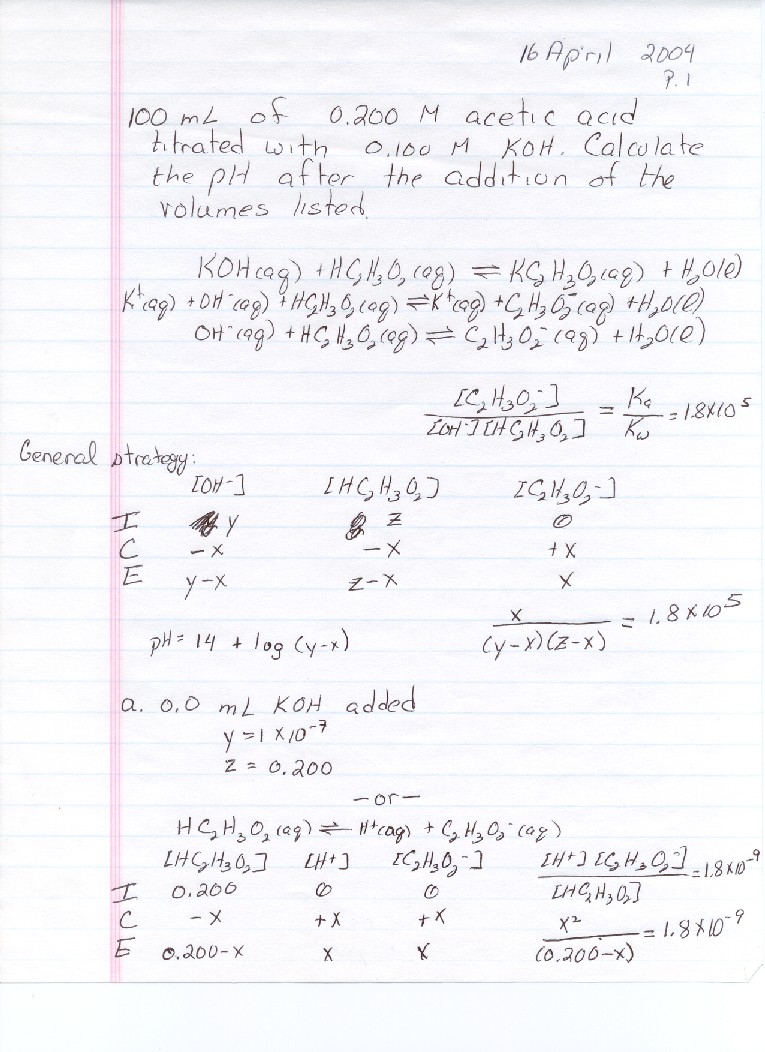 16 April 2004
P. 1
100 mL of 0.200 M acetic acid
titrated with 0.100 M KOH. Calculate
the pH after the addition of the
volumes listed.
KOH(aq) + HC₂H₃O₂(aq) ⇌ KC₂H₃O₂(aq) + H₂O(l)
K⁺(aq) + OH⁻(aq) + HC₂H₃O₂(aq) ⇌ K⁺(aq) + C₂H₃O₂⁻(aq) + H₂O(l)
OH⁻(aq) + HC₂H₃O₂(aq) ⇌ C₂H₃O₂⁻(aq) + H₂O(l)
[C₂H₃O₂⁻] / [OH⁻][HC₂H₃O₂] = Ka / Kw = 1.8×10⁵
General strategy:
[OH⁻] [HC₂H₃O₂] [C₂H₃O₂⁻]
I y z 0
C -x -x +x
E y-x z-x x
pH = 14 + log (y-x) x / (y-x)(z-x) = 1.8×10⁵
a. 0.0 mL KOH added
y = 1×10⁻⁷
z = 0.200
-or-
HC₂H₃O₂(aq) ⇌ H⁺(aq) + C₂H₃O₂⁻(aq)
[HC₂H₃O₂] [H⁺] [C₂H₃O₂⁻] [H⁺][C₂H₃O₂⁻] / [HC₂H₃O₂] = 1.8×10⁻⁹
I 0.200 0 0
C -x +x +x x² / (0.200-x) = 1.8×10⁻⁹
E 0.200-x x x